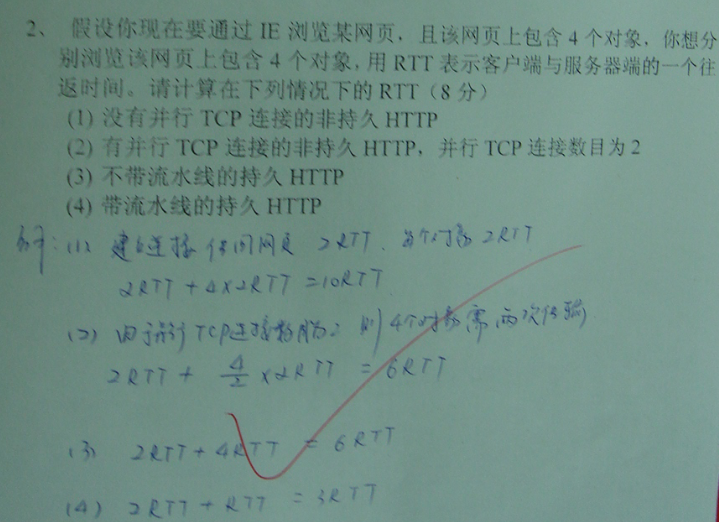 2、 假设你现在要通过 IE 浏览某网页，且该网页上包含 4 个对象，你想分
别浏览该网页上包含 4 个对象，用 RTT 表示客户端与服务器端的一个往
返时间。请计算在下列情况下的 RTT（8 分）
(1) 没有并行 TCP 连接的非持久 HTTP
(2) 有并行 TCP 连接的非持久 HTTP，并行 TCP 连接数目为 2
(3) 不带流水线的持久 HTTP
(4) 带流水线的持久 HTTP
解：(1) 建立连接 访问网页 2RTT. 每个对象 2RTT
2RTT + 4×2RTT = 10RTT
(2) 由于并行 TCP连接数为2 则 4个对象需两次传输
2RTT + 4/2 ×2RTT = 6RTT
(3) 2RTT + 4RTT = 6RTT
(4) 2RTT + RTT = 3RTT